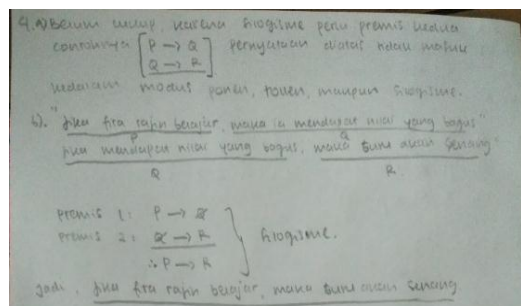 4. a) Belum cukup, karena silogisme perlu premis kedua
contohnya [P → Q pernyataan diatas tidak masuk
Q → R]
kedalam modus ponen, tollen, maupun silogisme.
b). "Jika fira rajin belajar, maka ia mendapat nilai yang bagus"
P Q
Jika mendapat nilai yang bagus, maka bunda akan senang
Q R.
Premis 1: P → Q
Premis 2: Q → R } silogisme.
∴ P → R
Jadi, jika fira rajin belajar, maka akan senang